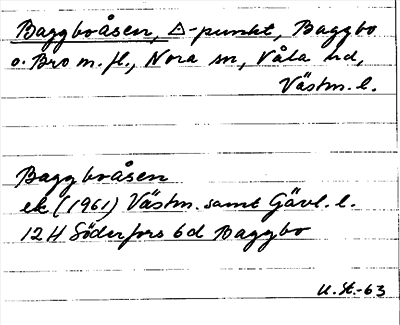 Baggboåsen, △-punkt, Baggbo
o. Bro m. fl., Nora sn, Våla hd,
Västm. l.
Baggboåsen
ek (1961) Västm. samt Gävl. l.
12H Söderfors 6d Baggbo
U. St.-63